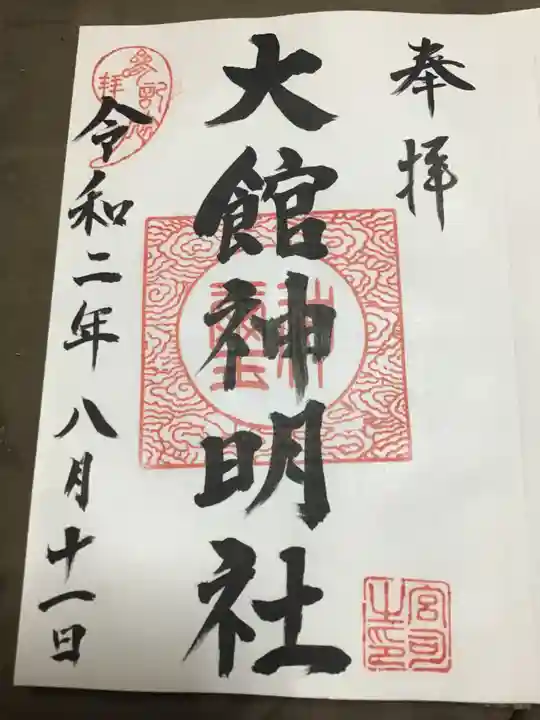 奉拝
大館神明社
宮司之印
令和二年八月十一日